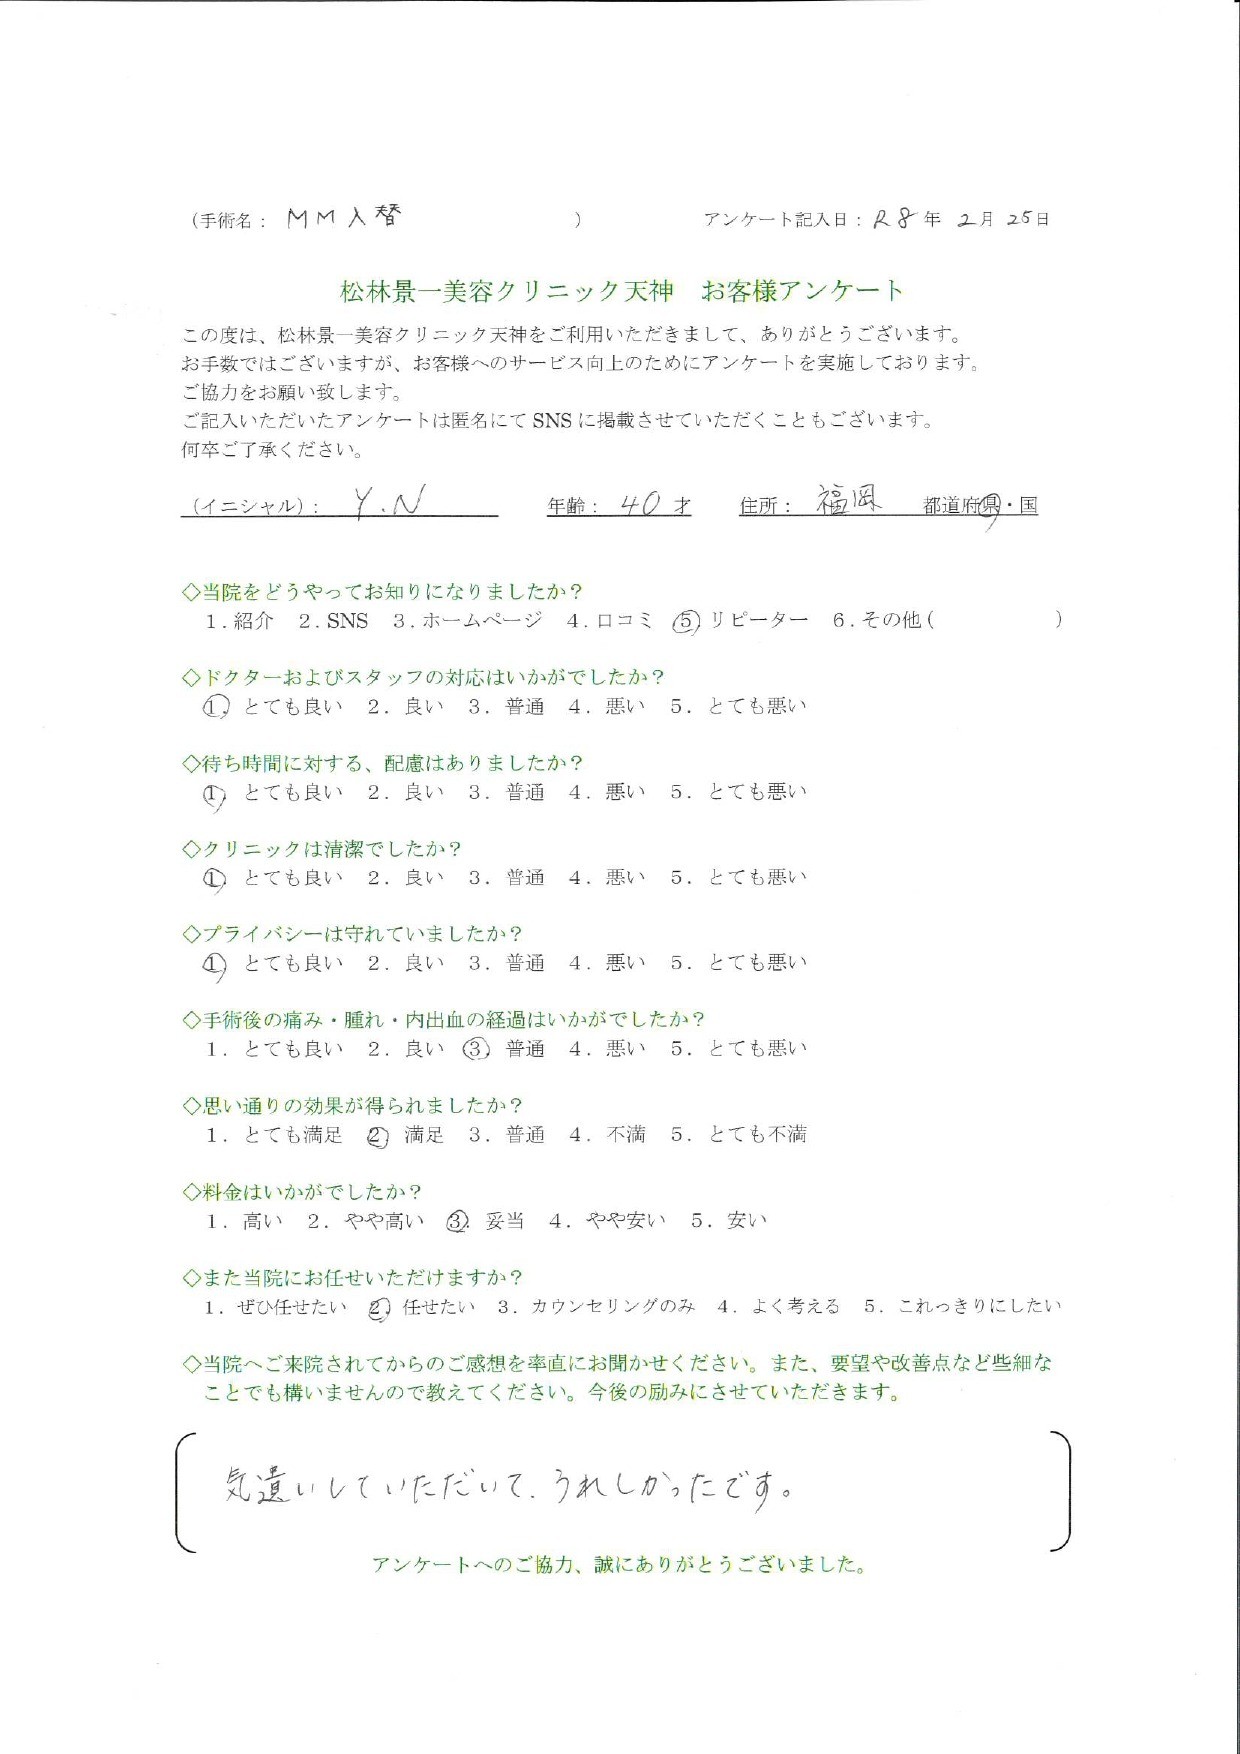 （手術名： MM入替 ） アンケート記入日：R8年 2月 25日
松林景一美容クリニック天神　お客様アンケート
この度は、松林景一美容クリニック天神をご利用いただきまして、ありがとうございます。
お手数ではございますが、お客様へのサービス向上のためにアンケートを実施しております。
ご協力をお願い致します。
ご記入いただいたアンケートは匿名にて SNS に掲載させていただくこともございます。
何卒ご了承ください。
（イニシャル）： Y.N 年齢： 40才 住所： 福岡 都道府県・国
◇当院をどうやってお知りになりましたか？
1.紹介 2.SNS 3.ホームページ 4.口コミ ⑤リピーター 6.その他（ ）
◇ドクターおよびスタッフの対応はいかがでしたか？
①．とても良い 2．良い 3．普通 4．悪い 5．とても悪い
◇待ち時間に対する、配慮はありましたか？
①．とても良い 2．良い 3．普通 4．悪い 5．とても悪い
◇クリニックは清潔でしたか？
①．とても良い 2．良い 3．普通 4．悪い 5．とても悪い
◇プライバシーは守れていましたか？
①．とても良い 2．良い 3．普通 4．悪い 5．とても悪い
◇手術後の痛み・腫れ・内出血の経過はいかがでしたか？
1．とても良い 2．良い ③．普通 4．悪い 5．とても悪い
◇思い通りの効果が得られましたか？
1．とても満足 ②．満足 3．普通 4．不満 5．とても不満
◇料金はいかがでしたか？
1．高い 2．やや高い ③．妥当 4．やや安い 5．安い
◇また当院にお任せいただけますか？
1．ぜひ任せたい ②．任せたい 3．カウンセリングのみ 4．よく考える 5．これっきりにしたい
◇当院へご来院されてからのご感想を率直にお聞かせください。また、要望や改善点など些細な
ことでも構いませんので教えてください。今後の励みにさせていただきます。
気遣いしていただいて、うれしかったです。
アンケートへのご協力、誠にありがとうございました。